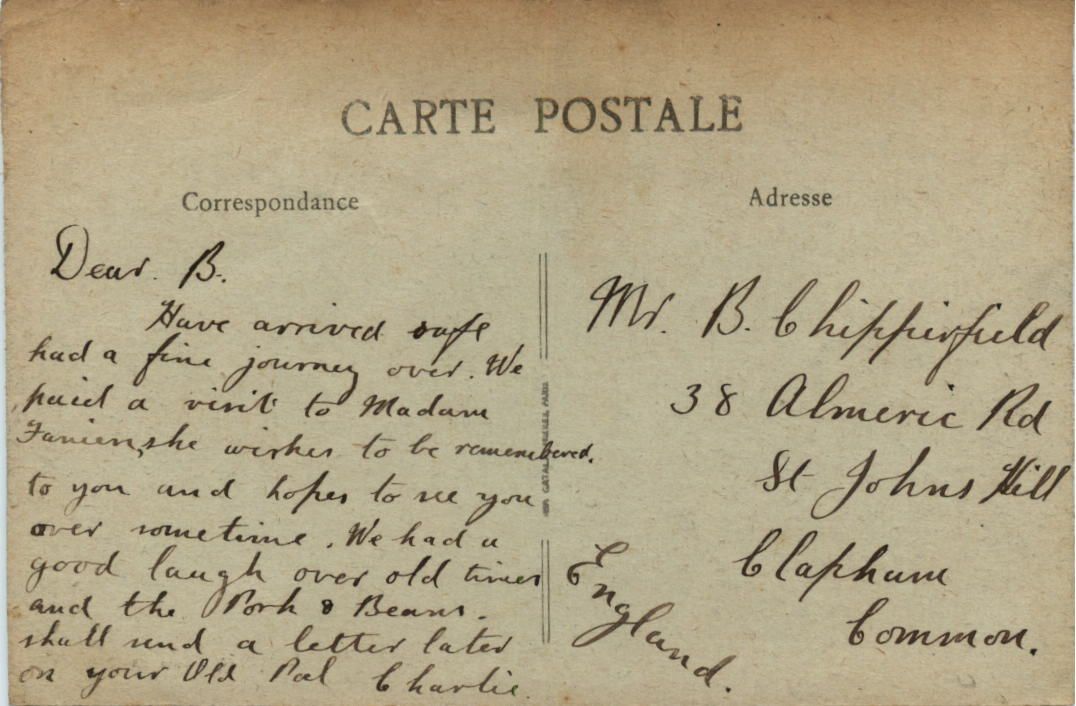 CARTE POSTALE
Correspondance
Adresse
Dear. B.
Have arrived safe
had a fine journey over. We
paid a visit to Madam
she wishes to be remembered.
to you and hopes to see you
over sometime. We had a
good laugh over old times
and the Pork & Beans.
shall send a letter later
on your Old Pal Charlie.
Mr. B. Chipperfield
38 Almeric Rd
St Johns Hill
Clapham
Common.
England.